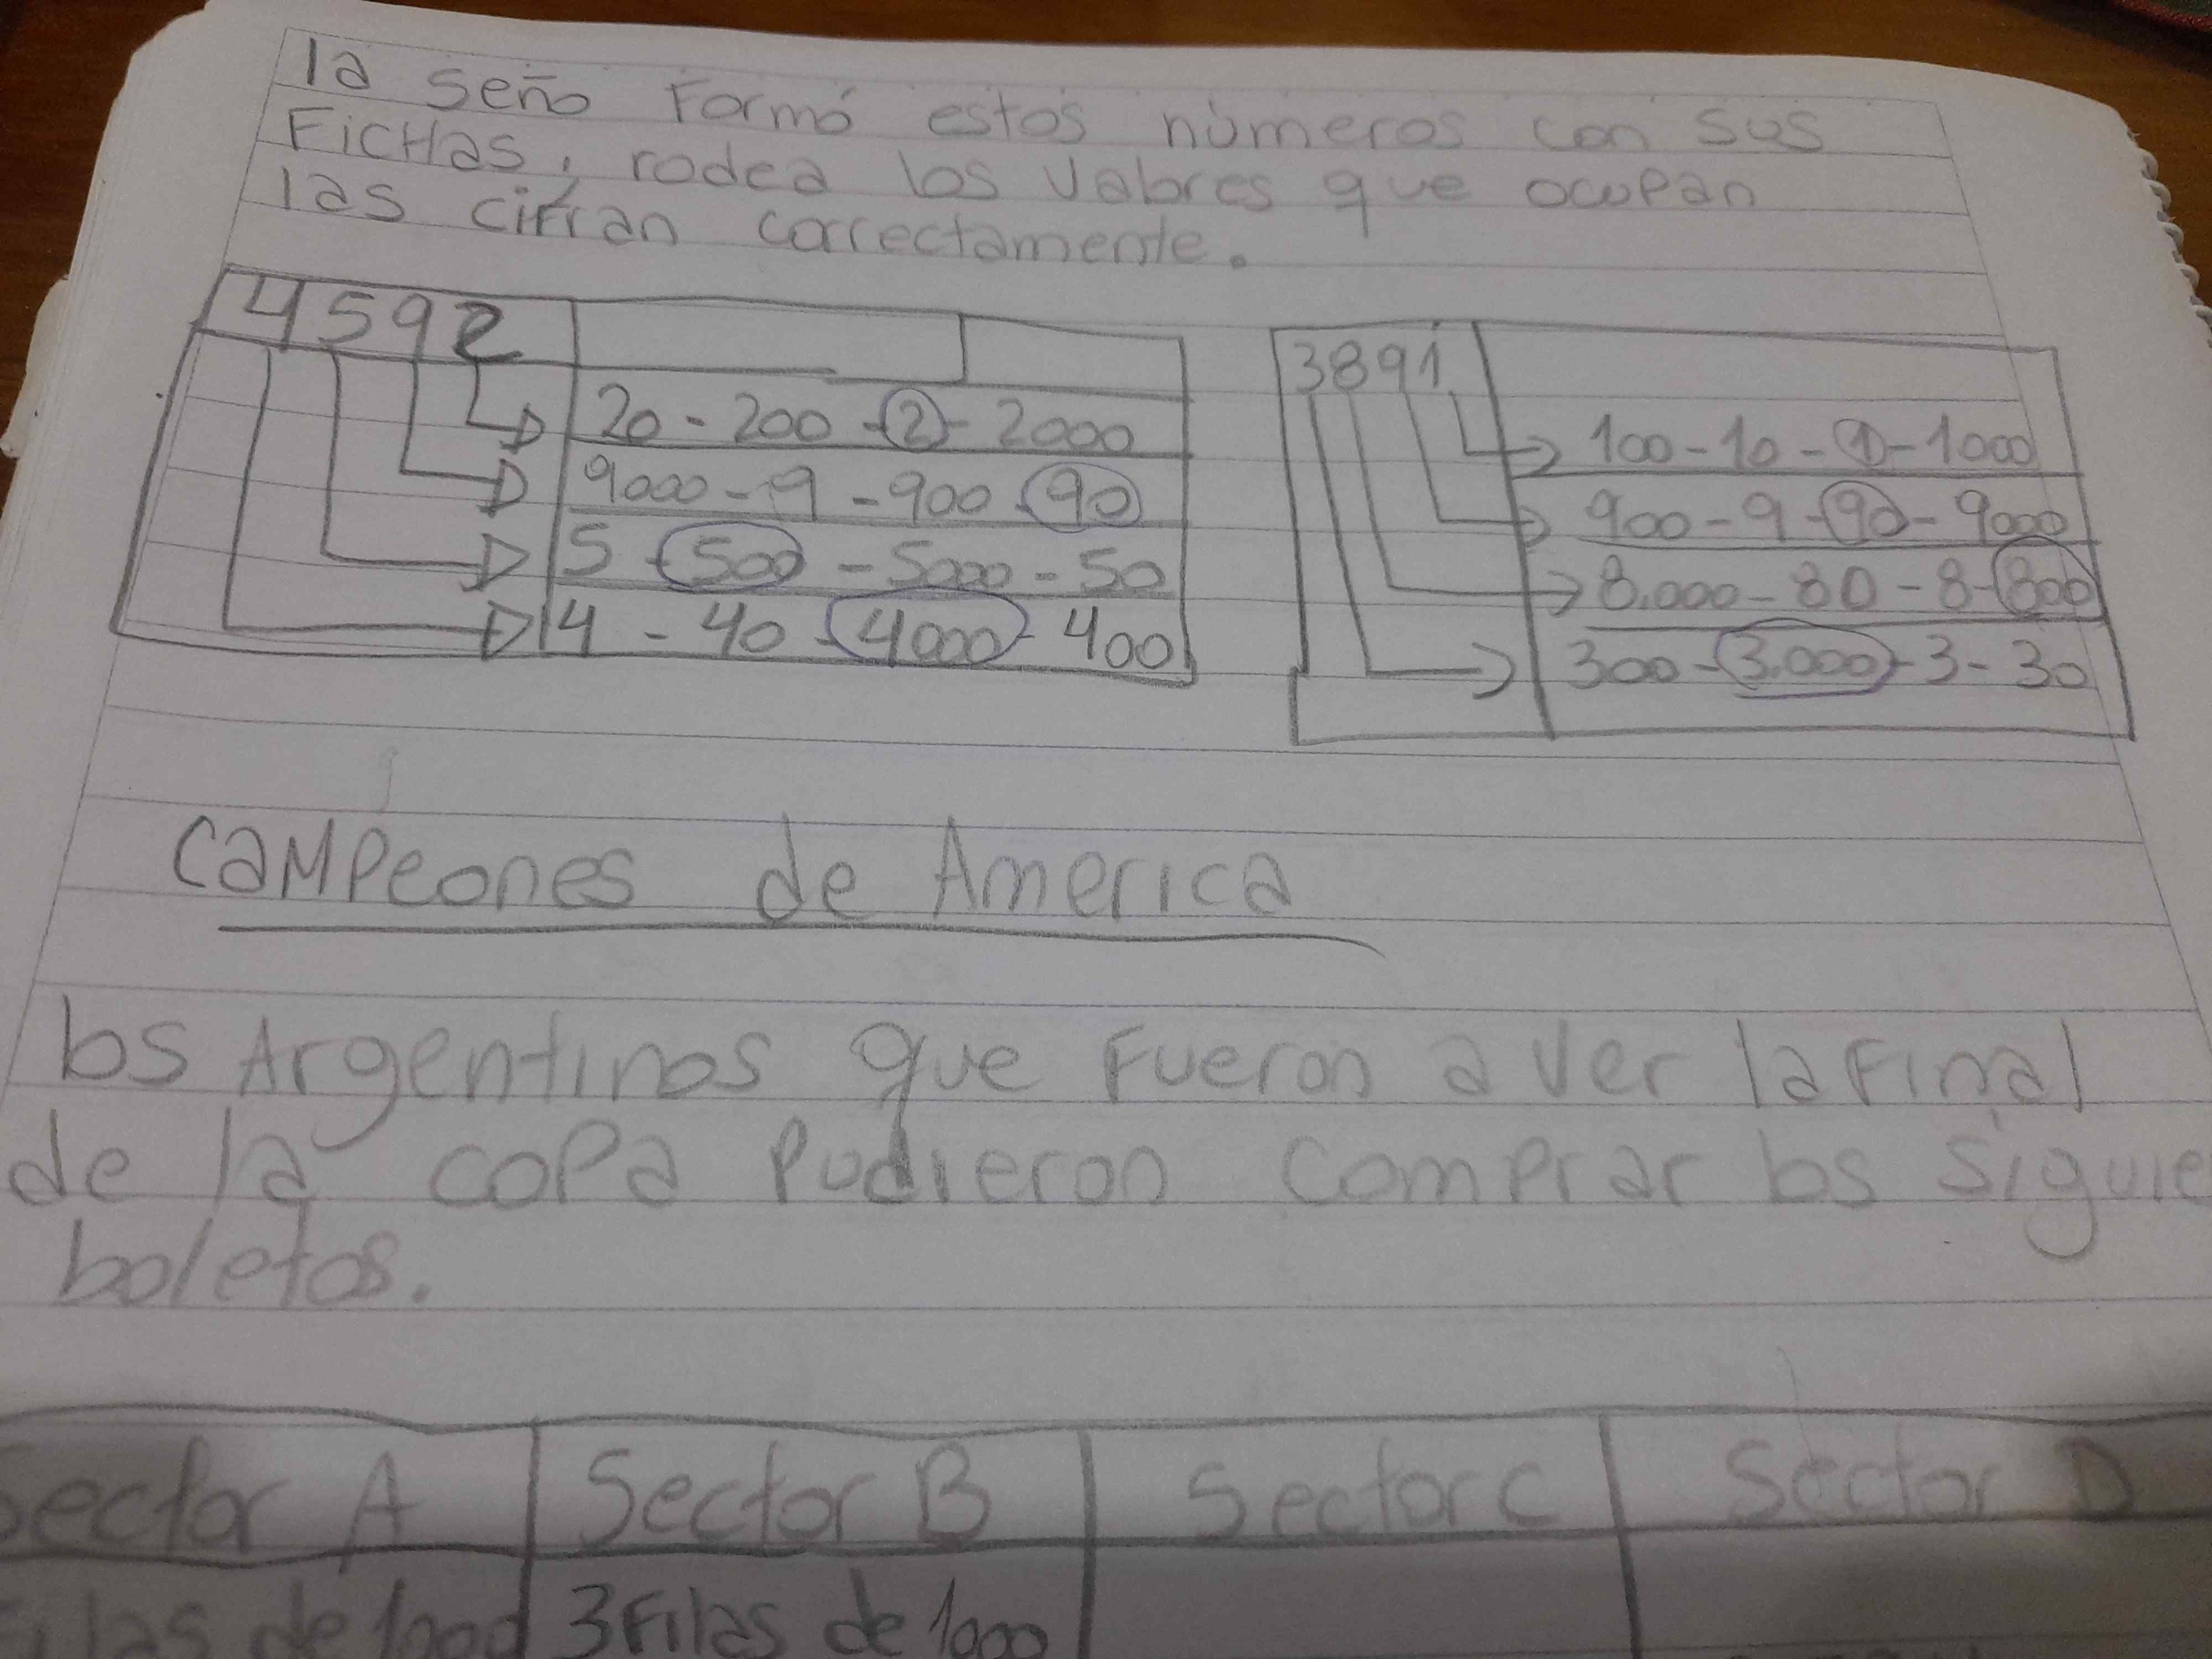 la seño Formó estos números con sus
FicHas, rodea los valores que ocupan
las cifran correctamente.
4592
20 - 200 - 2 - 2000
9000 - 9 - 900 - 90
5 - 500 - 5000 - 50
4 - 40 - 4000 - 400
3891
100 - 10 - 1 - 1000
900 - 9 - 90 - 9000
8.000 - 80 - 8 - 800
300 - 3.000 - 3 - 30
CaMPeones de America
los Argentinos que Fueron a ver la Final
de la copa Pudieron comprar los siguie
boletos.
Sector A Sector B Sector C Sector D
Filas de 1000 3 Filas de 1000